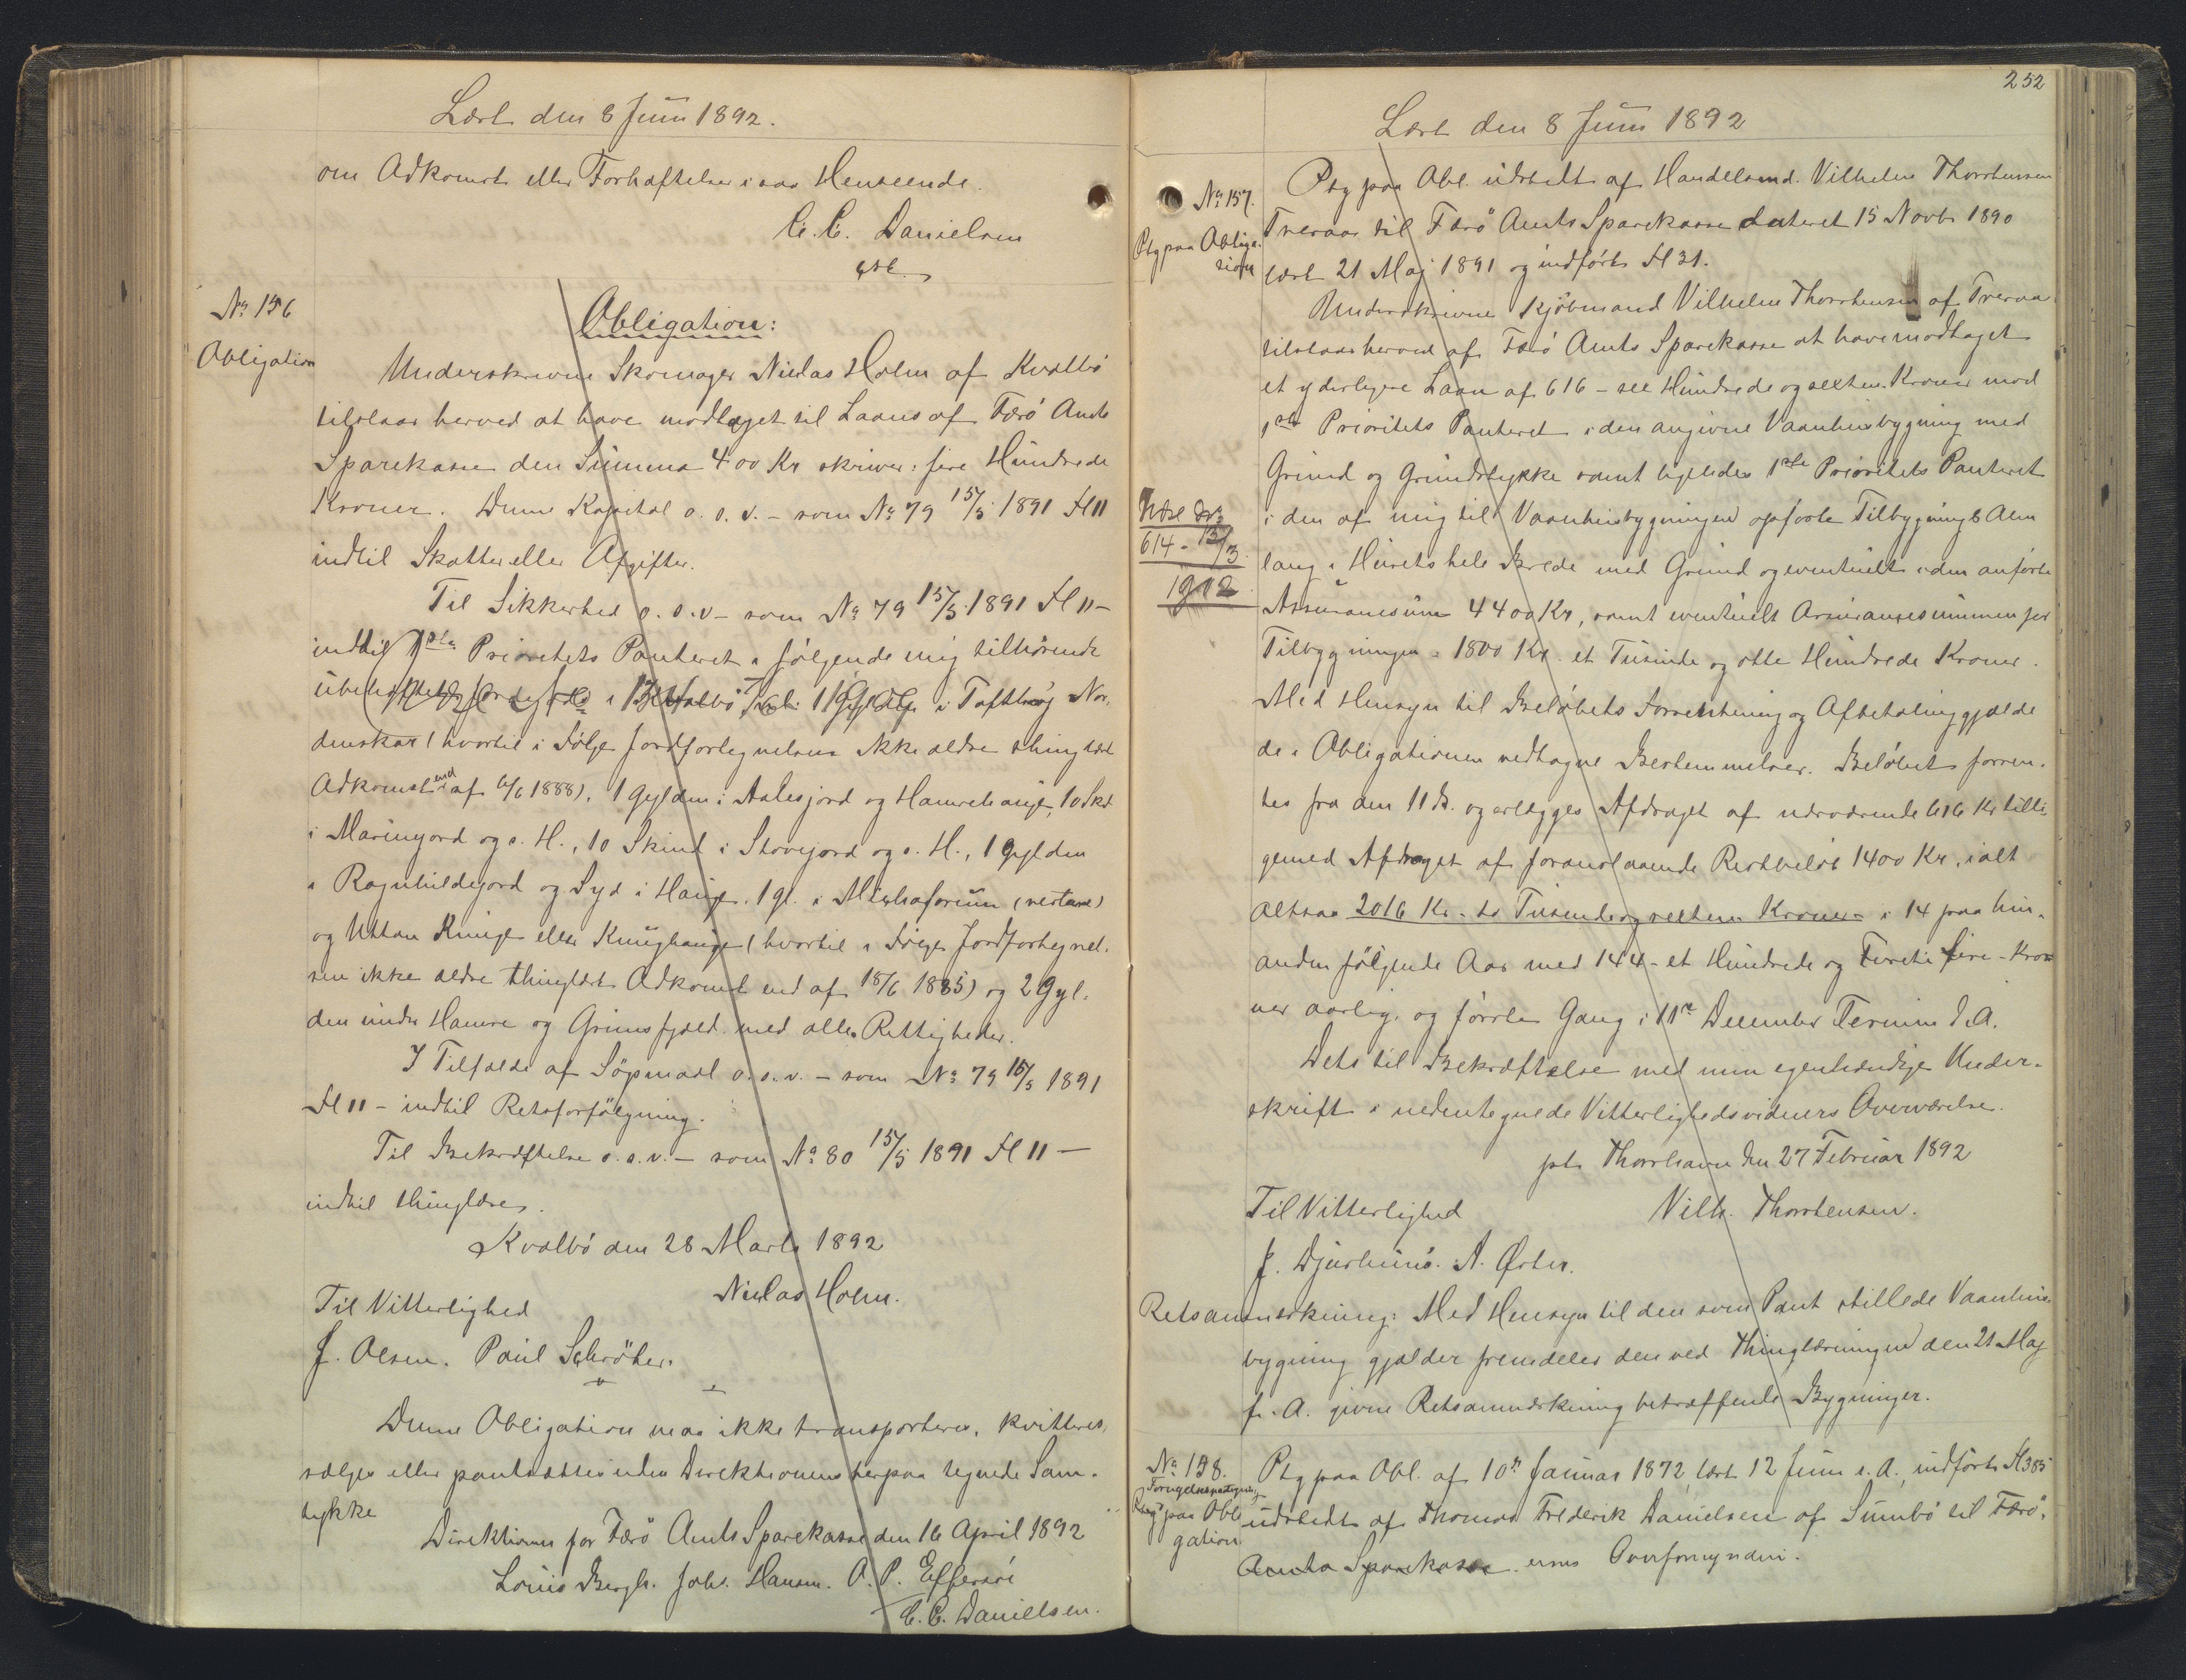 Læst den 8 Juni 1892.
om Adkomst eller Forhæftelser i saa Henseende.
C. C. Danielsen
gst.
No 156
Obligation
Obligation:
Underskrevne Skomager Niclas Holm af Kvalbø
tilstaar herved at have modtaget til Laans af Færø Amts
Sparekasse den Summa 400 Kr skriver: fire Hundrede
Kroner. Denne Kapital o. s. v. - som No 79 15/5 1891 Fl 11
indtil Skatter eller Afgifter.
Til Sikkerhed o. s. v - som No 79 15/5 1891 Fl 11 -
indtil 1ste Prioritets Panteret i følgende mig tilhørende
i Tofthøj Nor-
denskar (hvortil i Følge Jordfortegnelsen ikke ældre thinglæst
Adkomst end af 6/6 1888), 1 Gylden i Aalesjord og Hamrehauge, 10 Skd
i Marinjord og s. H., 10 Skind i Stovejord og s. H., 1 Gylden
i Ragnhildejord og Syd i Hauge. 1 gl. i (vestare)
og Uttan Ringe eller (hvortil i Følge Jordfortegnel-
sen ikke ældre thinglæst Adkomst end af 18/6 1885) og 2 Gyl-
den undir Hamre og Grimsfjæld med alle Rettigheder.
I Tilfælde af Søgsmaal o. s. v. - som No 79 15/5 1891
Fl 11 - indtil Retsforfølgning.
Til Bekræftelse o. s. v. - som No 80 15/5 1891 Fl 11 -
indtil thinglæses.
Kvalbø den 28 Marts 1892
Niclas Holm.
Til Vitterlighed
J. Olsen. Paul Schrøter.
Denne Obligation maa ikke transporteres, kvitteres,
sælges eller pantsættes uden Direktionens herpaa tegnede Sam-
tykke
Direktionen for Færø Amts Sparekasse den 16 April 1892
Louis Bergh. Johs. Hansen. O. P. Effersøe
C. C. Danielsen.
252
Læst den 8 Juni 1892
No 157.
Ptg paa Obliga-
tion
Ptg paa Obl. udstedt af Handelsmd. Vilhelm Thorsteinsen
Tveraa til Færö Amts Sparekasse dateret 15 Novbr 1890
læst 21 Maj 1891 og indført Fl 31.
Underskrevne Kjöbmand Vilhelm Thorsteinsen af Tveraa
tilstaar herved af Færö Amts Sparekasse at have modtaget
et yderligere Laan af 616 - sex Hundrede og sexten Kroner mod
1ste Prioritets Panteret i den angivne Vaanhusbygning med
Grund og Grundstykke samt ligeledes 1ste Prioritets Panteret
i den af mig til Vaanhusbygningen opførte Tilbygning 8 Alen
lang i Husets hele Brede med Grund og eventuelt i den anførte
Assurancesum 4400 Kr, samt eventuelt Assurancesummen for
Tilbygningen = 1800 Kr et Tusinde og otte Hundrede Kroner.
614 - 13/3
1912
Med Hensyn til Beløbets Forrentning og Afbetaling gjælde
de i Obligationen vedtagne Bestemmelser. Beløbet forren-
tes fra den 11 ds. og erlægges Afdraget af nærværende 616 Kr tilli-
gemed Afdraget af foranstaaende Restbeløb 1400 Kr, ialt
altsaa 2016 Kr - to Tusinde og sexten Kroner - i 14 paa hin-
anden følgende Aar med 144 - et Hundrede og Fireti fire - Kro-
ner aarlig og første Gang i 11te December Termin d. A.
Dets til Bekræftelse med min egenhændige Under-
skrift i nedentegnede Vitterlighedsvidners Overværelse.
pt. Thorshavn den 27 Februar 1892
Vilh. Thorsteinsen.
Til Vitterlighed
J. Djurhuus. A. Öster.
Retsanmærkning: Med Hensyn til den som Pant stillede Vaanhus-
bygning gjælder fremdeles den ved Thinglæsningen den 21 Maj
f. A. givne Retsanmærkning betræffende Bygninger.
No 158.
paa Obli
gation
Ptg paa Obl. af 10de Januar 1872 læst 12 Juni s. A. indført Fl 385
udstedt af Thomas Frederik Danielsen af Sumbø til Færø
Amts Sparekasse Overformynderi.